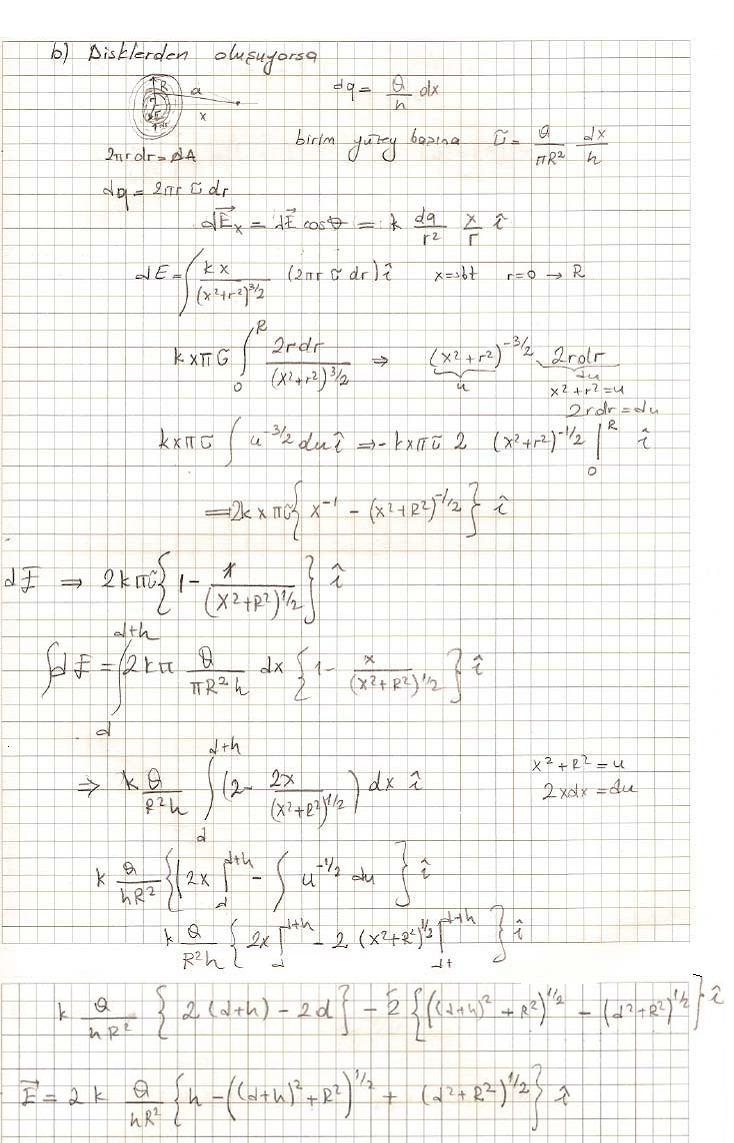 b) Disklerden oluşuyorsa
R a x
dq = Q/h dx
birim yüzey başına σ = Q/πR² dx/h
2πrdr = dA
dq = 2πr σ dr
dE⃗ₓ = dE⃗ cosθ = k dq/r² x/r î
dE = ∫ kx/(x²+r²)^3/2 (2πr σ dr) î x=sbt r=0 → R
kxπσ ∫₀ᴿ 2rdr/(x²+r²)^3/2 ⇒ (x²+r²)^-3/2 2rdr
u du
x²+r²=u
2rdr=du
kxπσ ∫ u^-3/2 du î ⇒ - kxπσ 2 (x²+r²)^-1/2 |₀ᴿ î
⇒ 2kxπσ { x⁻¹ - (x²+R²)^-1/2 } î
dE ⇒ 2kπσ { 1 - x/(x²+R²)^1/2 } î
∫dE = ∫_d^d+h 2kπ Q/πR²h dx { 1 - x/(x²+R²)^1/2 } î
⇒ k Q/R²h ∫_d^d+h (2 - 2x/(x²+R²)^1/2) dx î
x²+R² = u
2xdx = du
k Q/hR² { (2x |_d^d+h - ∫ u^-1/2 du } î
k Q/R²h { 2x |_d^d+h - 2 (x²+R²)^1/2 |_d^d+h } î
k Q/hR² { 2(d+h) - 2d } - 2 { ((d+h)² + R²)^1/2 - (d²+R²)^1/2 } î
E⃗ = 2k Q/hR² { h - ((d+h)²+R²)^1/2 + (d²+R²)^1/2 } î